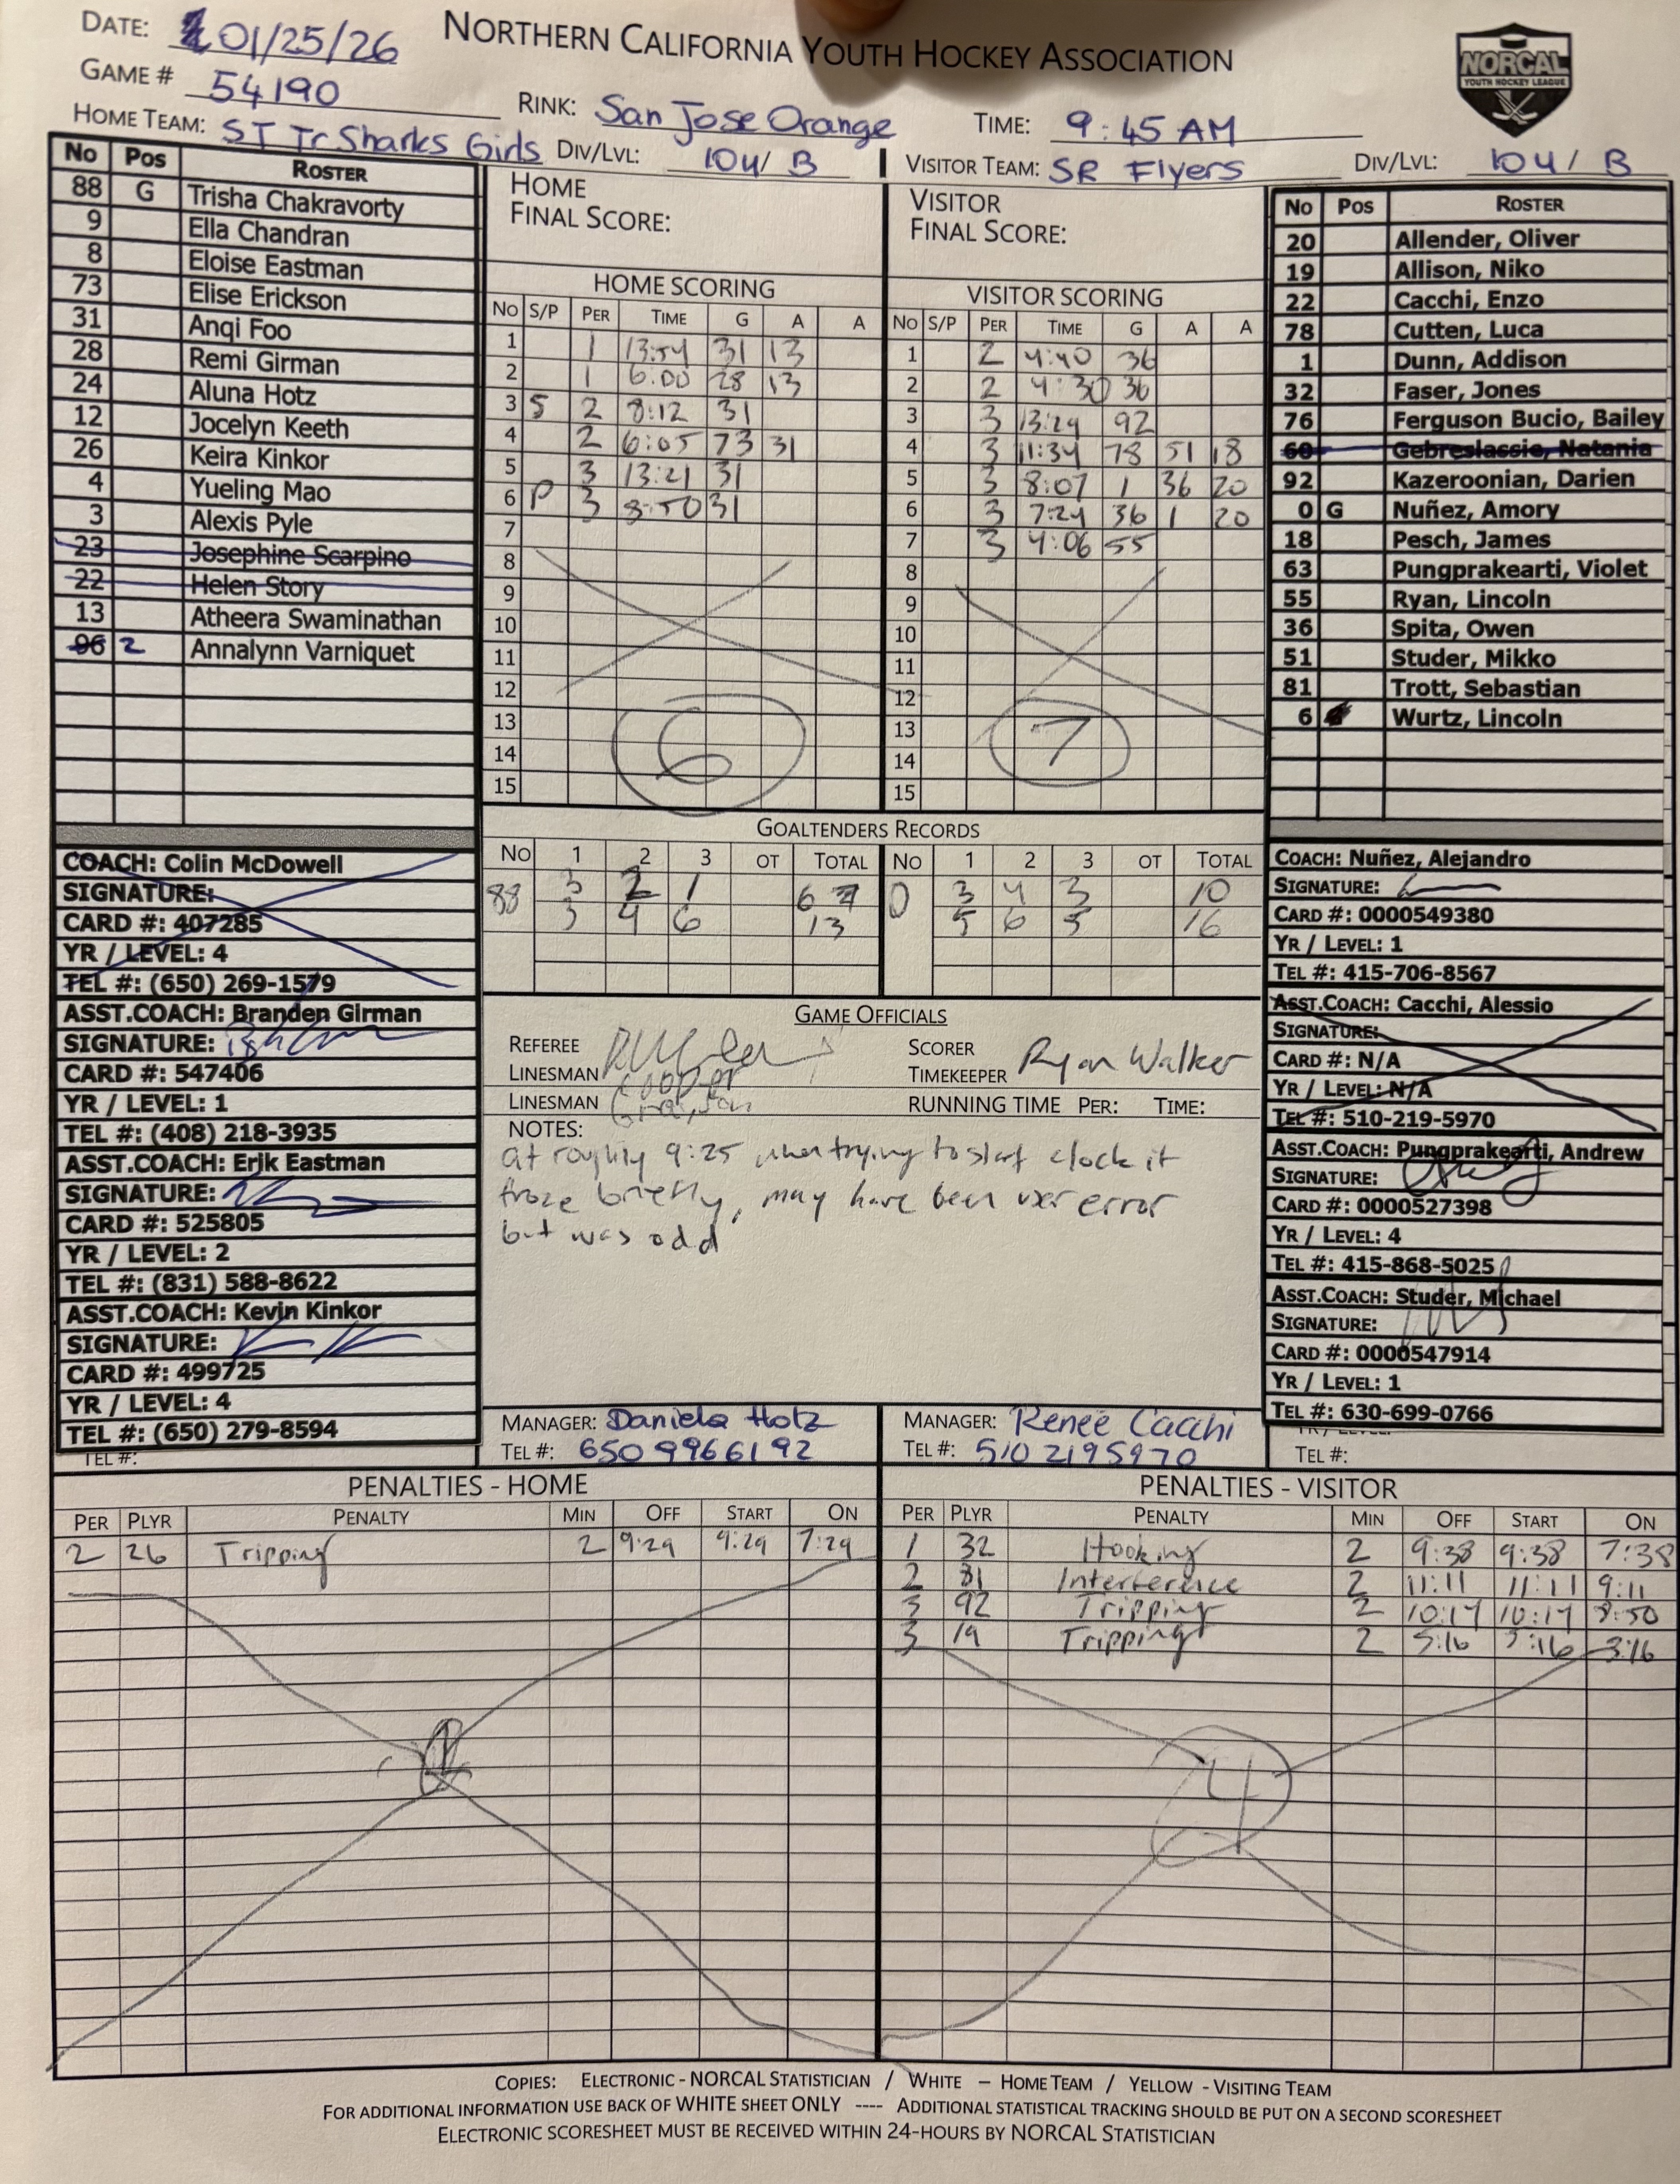 DATE: 01/25/26
NORTHERN CALIFORNIA YOUTH HOCKEY ASSOCIATION
NORCAL
YOUTH HOCKEY LEAGUE
GAME # 54190
RINK: San Jose Orange
TIME: 9:45 AM
HOME TEAM: ST Jr Sharks Girls
DIV/LVL: 10U/ B
VISITOR TEAM: SR Flyers
DIV/LVL: 10U/ B
No Pos ROSTER
88 G Trisha Chakravorty
9 Ella Chandran
8 Eloise Eastman
73 Elise Erickson
31 Anqi Foo
28 Remi Girman
24 Aluna Hotz
12 Jocelyn Keeth
26 Keira Kinkor
4 Yueling Mao
3 Alexis Pyle
23 Josephine Scarpino
22 Helen Story
13 Atheera Swaminathan
96 2 Annalynn Varniquet
COACH: Colin McDowell
SIGNATURE:
CARD #: 407285
YR / LEVEL: 4
TEL #: (650) 269-1579
ASST.COACH: Branden Girman
SIGNATURE:
CARD #: 547406
YR / LEVEL: 1
TEL #: (408) 218-3935
ASST.COACH: Erik Eastman
SIGNATURE:
CARD #: 525805
YR / LEVEL: 2
TEL #: (831) 588-8622
ASST.COACH: Kevin Kinkor
SIGNATURE:
CARD #: 499725
YR / LEVEL: 4
TEL #: (650) 279-8594
TEL #:
HOME
FINAL SCORE:
HOME SCORING
No S/P PER TIME G A A
1 1 13:54 31 13
2 1 6:00 28 13
3 S 2 8:12 31
4 2 6:05 73 31
5 3 13:21 31
6 P 3 8:50 31
7
8
9
10
11
12
13
14
15
6
VISITOR
FINAL SCORE:
VISITOR SCORING
No S/P PER TIME G A A
1 2 4:40 36
2 2 4:30 36
3 3 13:29 92
4 3 11:34 78 51 18
5 3 8:07 1 36 20
6 3 7:24 36 1 20
7 3 4:06 55
8
9
10
11
12
13
14
15
7
GOALTENDERS RECORDS
No 1 2 3 OT TOTAL No 1 2 3 OT TOTAL
88 3 2 1 6 0 3 4 3 10
3 4 6 13 5 6 5 16
GAME OFFICIALS
REFEREE
LINESMAN Cooper
LINESMAN Grayson
SCORER
TIMEKEEPER Ryan Walker
RUNNING TIME PER: TIME:
NOTES:
at roughly 9:25 when trying to start clock it
froze briefly, may have been user error
but was odd
MANAGER: Daniela Hotz
TEL #: 650 9966192
MANAGER: Renee Cacchi
TEL #: 510 2195970
No Pos ROSTER
20 Allender, Oliver
19 Allison, Niko
22 Cacchi, Enzo
78 Cutten, Luca
1 Dunn, Addison
32 Faser, Jones
76 Ferguson Bucio, Bailey
60 Gebreslassie, Natania
92 Kazeroonian, Darien
0 G Nuñez, Amory
18 Pesch, James
63 Pungprakearti, Violet
55 Ryan, Lincoln
36 Spita, Owen
51 Studer, Mikko
81 Trott, Sebastian
6 Wurtz, Lincoln
COACH: Nuñez, Alejandro
SIGNATURE:
CARD #: 0000549380
YR / LEVEL: 1
TEL #: 415-706-8567
ASST.COACH: Cacchi, Alessio
SIGNATURE:
CARD #: N/A
YR / LEVEL: N/A
TEL #: 510-219-5970
ASST.COACH: Pungprakearti, Andrew
SIGNATURE:
CARD #: 0000527398
YR / LEVEL: 4
TEL #: 415-868-5025
ASST.COACH: Studer, Michael
SIGNATURE:
CARD #: 0000547914
YR / LEVEL: 1
TEL #: 630-699-0766
TEL #:
PENALTIES - HOME
PER PLYR PENALTY MIN OFF START ON
2 26 Tripping 2 9:29 9:29 7:29
PENALTIES - VISITOR
PER PLYR PENALTY MIN OFF START ON
1 32 Hooking 2 9:38 9:38 7:38
2 81 Interference 2 11:11 11:11 9:11
3 92 Tripping 2 10:17 10:17 8:50
3 19 Tripping 2 5:16 5:16 3:16
4
COPIES: ELECTRONIC - NORCAL STATISTICIAN / WHITE – HOME TEAM / YELLOW - VISITING TEAM
FOR ADDITIONAL INFORMATION USE BACK OF WHITE SHEET ONLY ---- ADDITIONAL STATISTICAL TRACKING SHOULD BE PUT ON A SECOND SCORESHEET
ELECTRONIC SCORESHEET MUST BE RECEIVED WITHIN 24-HOURS BY NORCAL STATISTICIAN